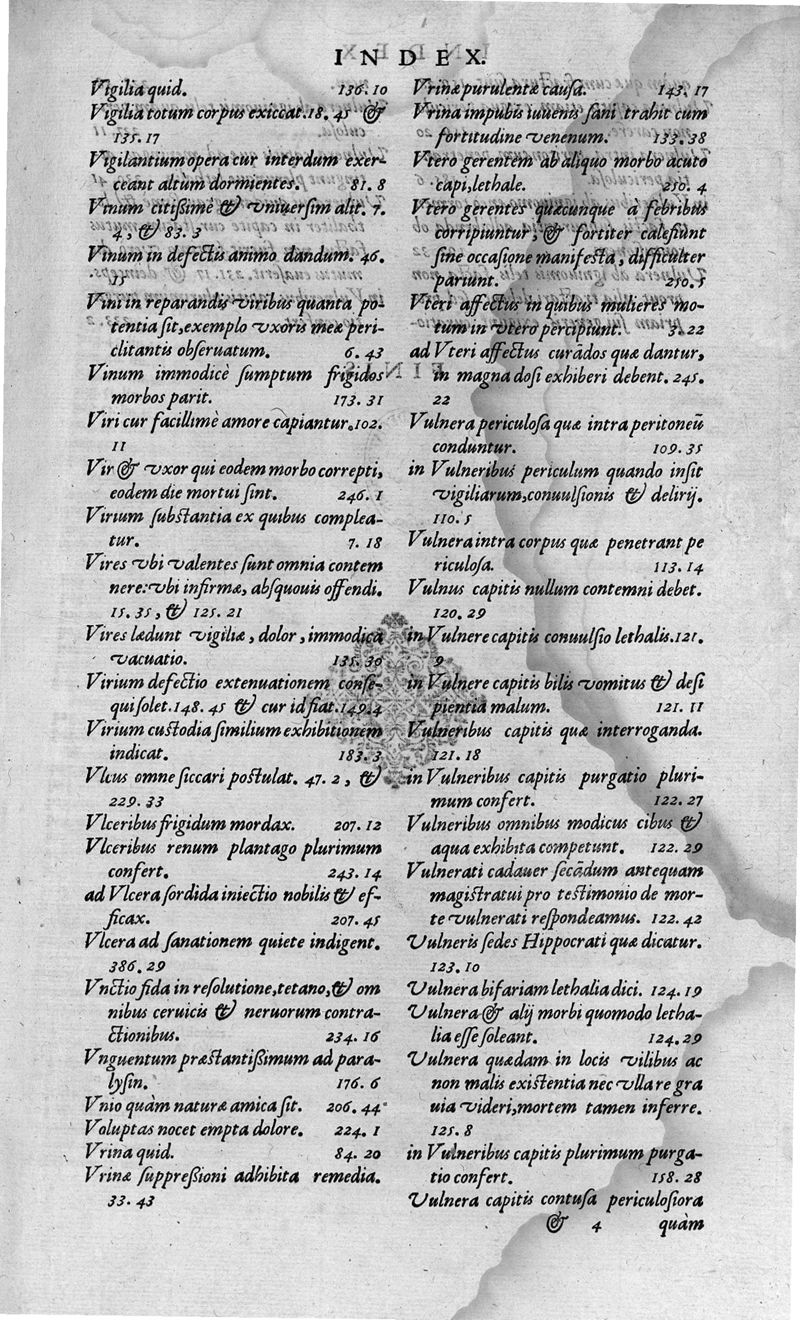 INDEX.
Vigilia quid. 136.10
Vigilia totum corpus exiccat. 18. 45 &
135.17
Vigilantium opera cur interdum exer-
ceant altum dormientes. 81. 8
Vinum citißimè & vniuersim alit. 7.
4, & 83. 3
Vinum in defectis animo dandum. 46.
15
Vini in reparandis viribus quanta po-
tentia sit, exemplo vxoris meæ peri-
clitantis obseruatum. 6. 43
Vinum immodicè sumptum frigidos
morbos parit. 173. 31
Viri cur facillimè amore capiantur. 102.
11
Vir & vxor qui eodem morbo correpti,
eodem die mortui sint. 246. 1
Virium substantia ex quibus complea-
tur. 7. 18
Vires vbi valentes sunt omnia contem
nere: vbi infirmæ, absquouis offendi.
15. 35, & 125. 21
Vires lædunt vigiliæ, dolor, immodica
vacuatio. 135. 30
Virium defectio extenuationem conse-
qui solet. 148. 45 & cur id fiat. 149. 4
Virium custodia similium exhibitionem
indicat. 183. 3
Vlcus omne siccari postulat. 47. 2, &
229. 33
Vlceribus frigidum mordax. 207. 12
Vlceribus renum plantago plurimum
confert. 243. 14
ad Vlcera sordida iniectio nobilis & ef-
ficax. 207. 45
Vlcera ad sanationem quiete indigent.
386. 29
Vnctio fida in resolutione, tetano, & om
nibus ceruicis & neruorum contra-
ctionibus. 234. 16
Vnguentum præstantißimum ad para-
lysin. 176. 6
Vnio quàm naturæ amica sit. 206. 44
Voluptas nocet empta dolore. 224. 1
Vrina quid. 84. 20
Vrinæ suppreßioni adhibita remedia.
33. 43
Vrinæ purulentæ causa. 143. 17
Vrina impubis iuuenis sani trahit cum
fortitudine venenum. 133. 38
Vtero gerentem ab aliquo morbo acuto
capi, lethale. 250. 4
Vtero gerentes quæcunque à febribus
corripiuntur, & fortiter calefiunt
sine occasione manifesta, difficulter
pariunt. 250. 5
Vteri affectus in quibus mulieres mo-
tum in vtero percipiunt. 3. 22
ad Vteri affectus curādos quæ dantur,
in magna dosi exhiberi debent. 245.
22
Vulnera periculosa quæ intra peritoneū
conduntur. 109. 35
in Vulneribus periculum quando insit
vigiliarum, conuulsionis & delirij.
110. 5
Vulnera intra corpus quæ penetrant pe
riculosa. 113. 14
Vulnus capitis nullum contemni debet.
120. 29
in Vulnere capitis conuulsio lethalis. 121.
9
in Vulnere capitis bilis vomitus & desi
pientia malum. 121. 11
Vulneribus capitis quæ interroganda.
121. 18
in Vulneribus capitis purgatio pluri-
mum confert. 122. 27
Vulneribus omnibus modicus cibus &
aqua exhibita competunt. 122. 29
Vulnerati cadauer secādum antequam
magistratui pro testimonio de mor-
te vulnerati respondeamus. 122. 42
Vulneris sedes Hippocrati quæ dicatur.
123. 10
Vulnera bifariam lethalia dici. 124. 19
Vulnera & alij morbi quomodo letha-
lia esse soleant. 124. 29
Vulnera quædam in locis vilibus ac
non malis existentia nec vlla re gra
uia videri, mortem tamen inferre.
125. 8
in Vulneribus capitis plurimum purga-
tio confert. 158. 28
Vulnera capitis contusa periculosiora
& 4 quàm